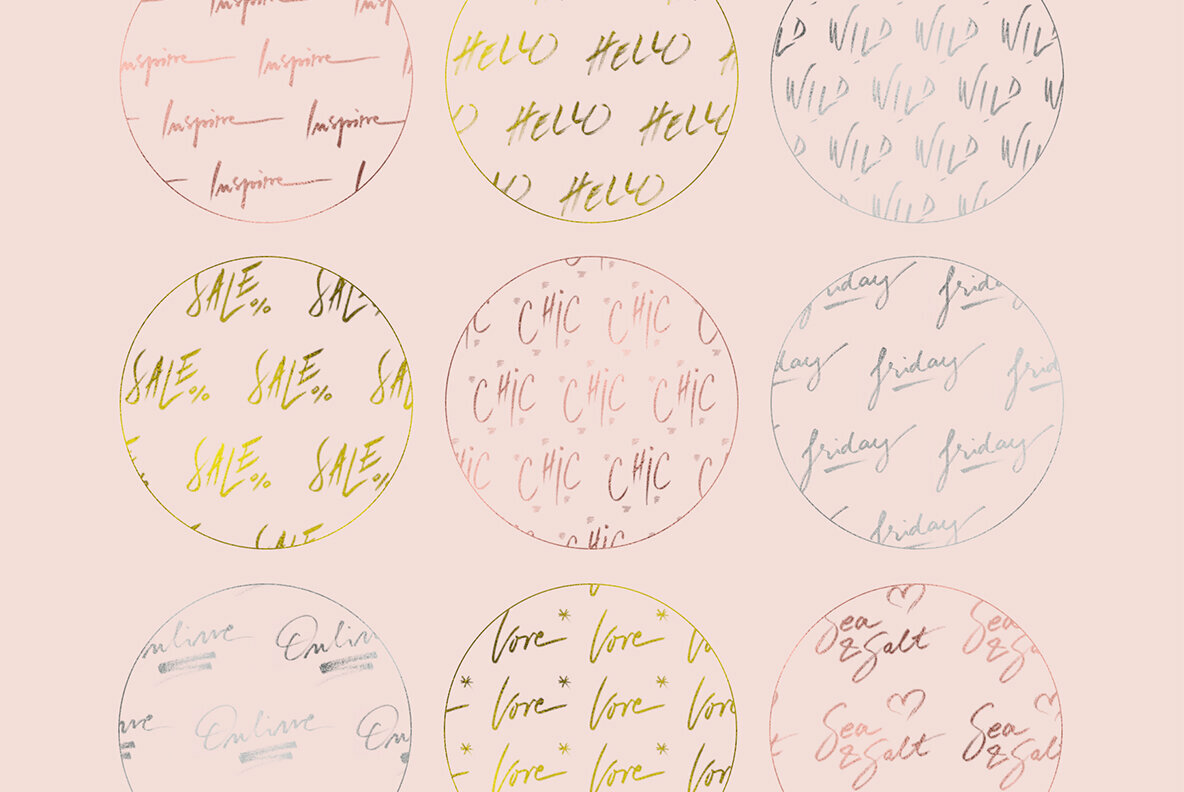 Inspire Ins
Inspire Inspire I
Inspire Inspire
Inspire I
HELLO HELLO H
O HELLO HELLO
LO HELLO
LD WILD WILD WILD
WILD WILD WILD W
D WILD WILD WIL
WILD WI
SALE% SALE
SALE% SALE% SA
SALE% SALE%
SALE
IC CHIC CHIC C
CHIC CHIC CHIC
HIC CHIC CHIC C
CHIC
riday frida
day friday frid
friday friday
friday
nline Onlin
ine Online On
Vore* Vore* Vo
* Vore* Vore* Vor
* Vore* Vore* Vor
Sea Sea
& Salt & Sa
Sea Sea
& Salt & Sal